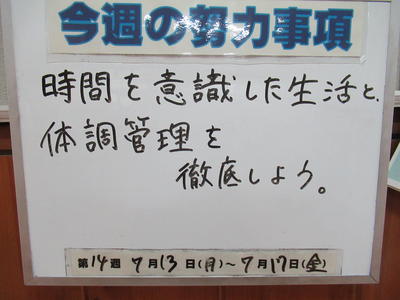 今週の努力事項
時間を意識した生活と、
体調管理を
徹底しよう。
第14週 7月13日(月)～7月17日(金)